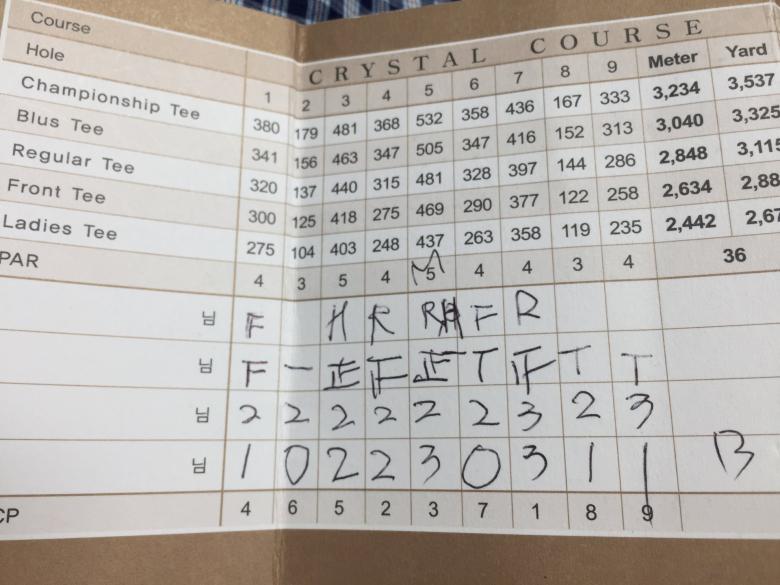 Course CRYSTAL COURSE
Hole 1 2 3 4 5 6 7 8 9 Meter Yard
Championship Tee 380 179 481 368 532 358 436 167 333 3,234 3,537
Blus Tee 341 156 463 347 505 347 416 152 313 3,040 3,325
Regular Tee 320 137 440 315 481 328 397 144 286 2,848 3,115
Front Tee 300 125 418 275 469 290 377 122 258 2,634 2,88
Ladies Tee 275 104 403 248 437 263 358 119 235 2,442 2,67
PAR 4 3 5 4 5 4 4 3 4 36
님 F H R R F R
님 F 一 正 F 正 T F T T
님 2 2 2 2 2 2 3 2 3
님 1 0 2 2 3 0 3 1 1 13
CP 4 6 5 2 3 7 1 8 9